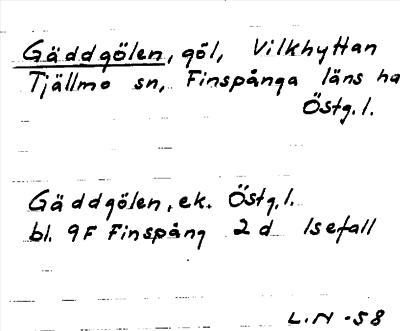 Gäddgölen, göl, Vilkhyttan
Tjällmo sn, Finspånga läns ha
Östg.l.
Gäddgölen, ek. Östg.l.
bl. 9F Finspång 2d Isefall
L.N -58